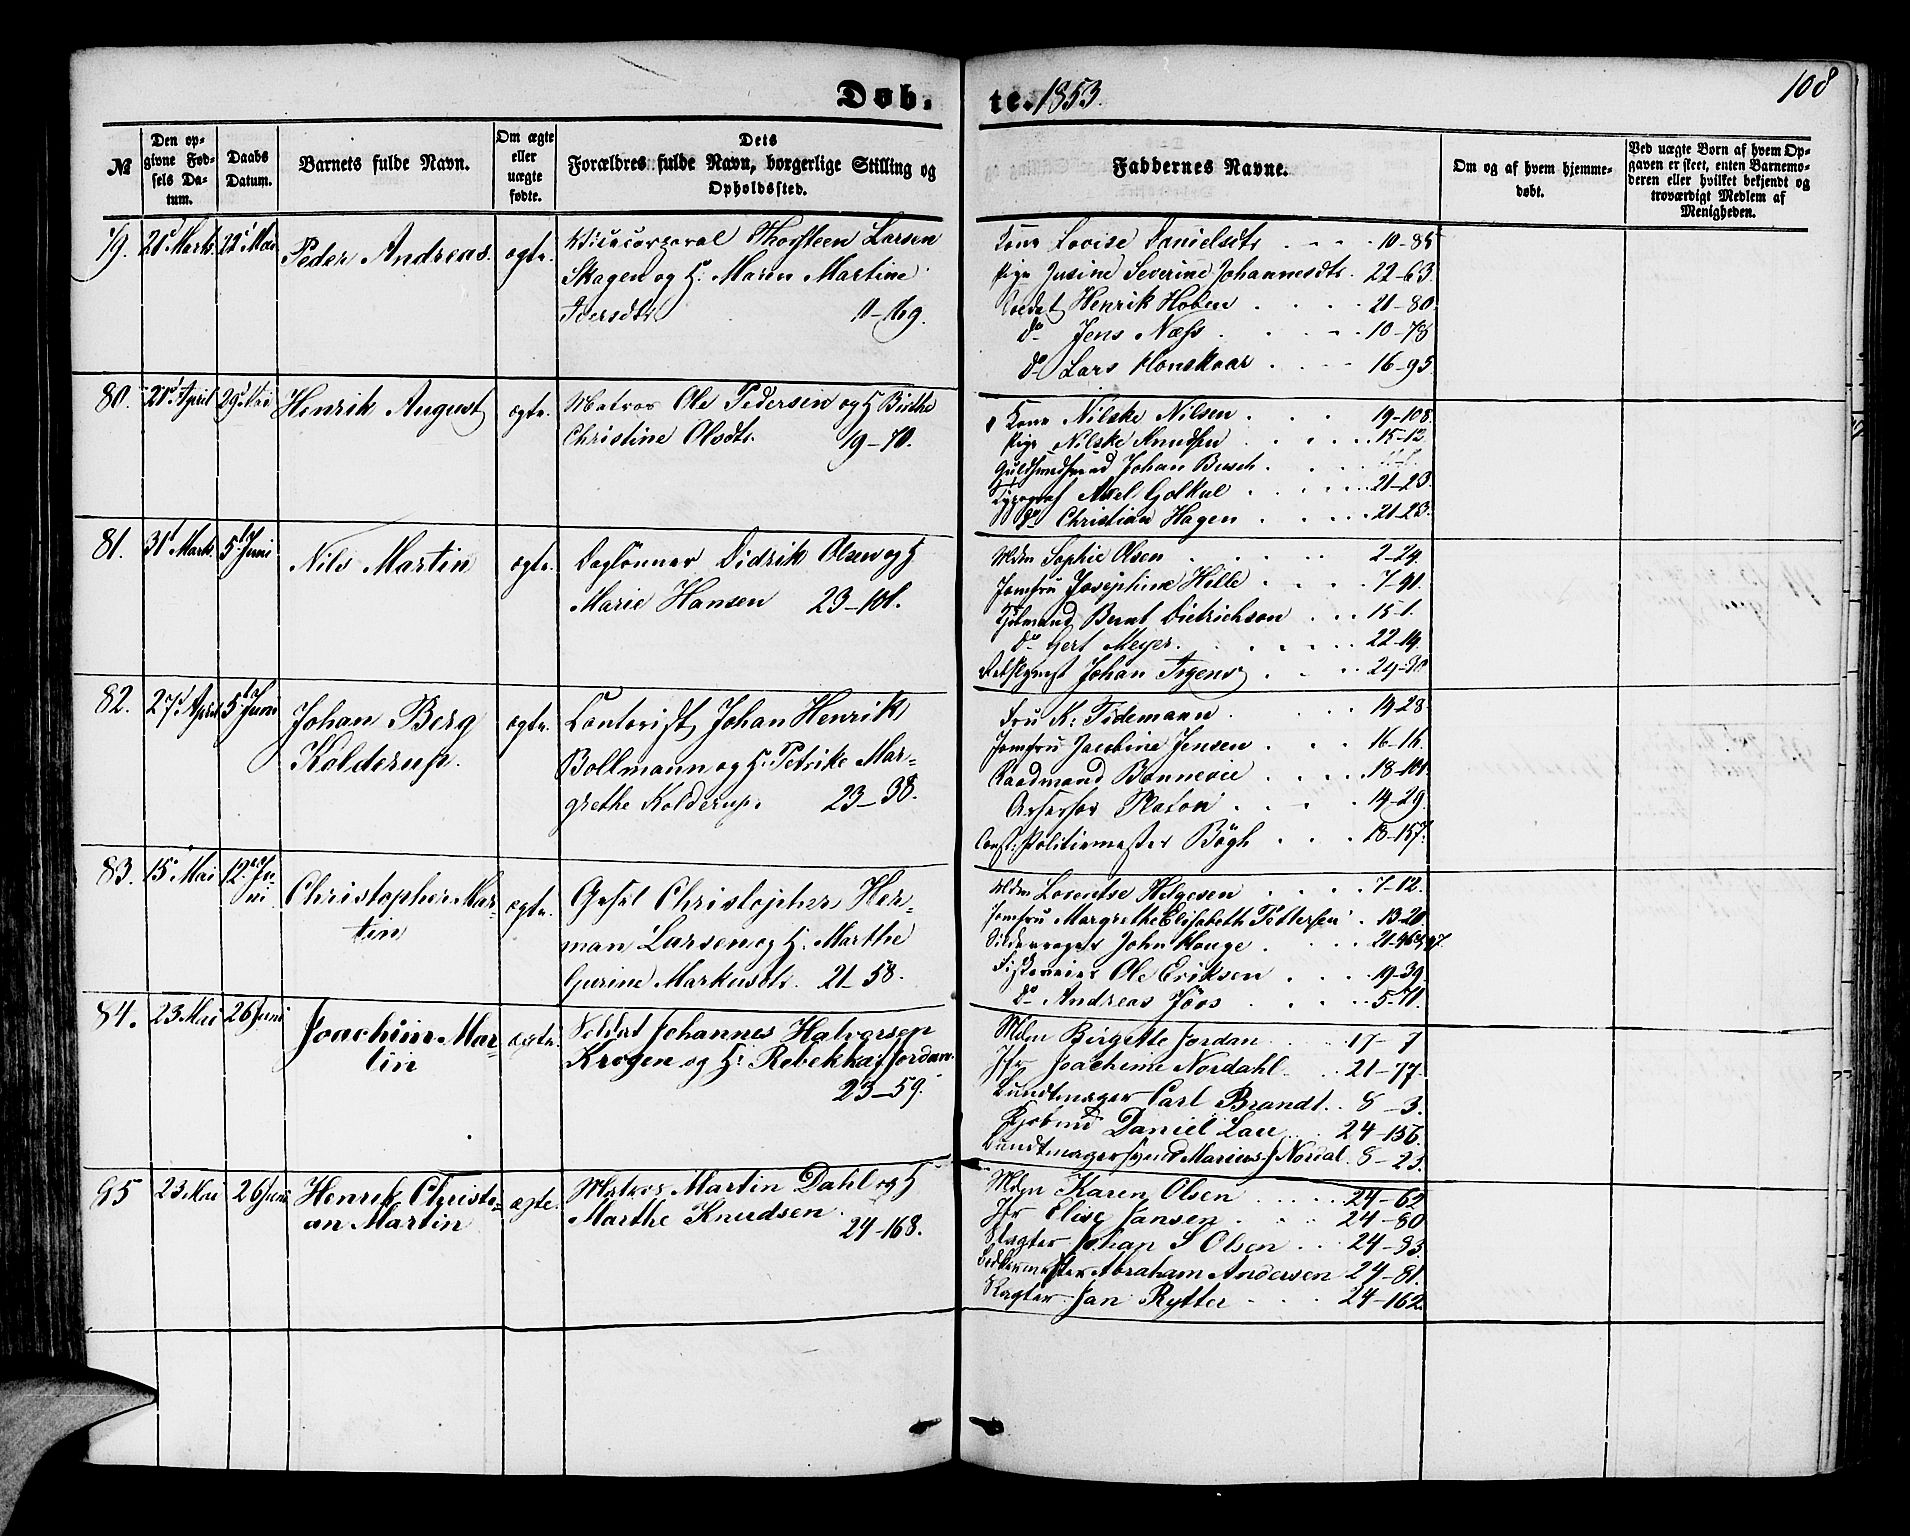 Døb. te. 1853. 108
№
Den opgivne Fødsels Datum.
Daabs Datum.
Barnets fulde Navn.
Om ægte eller uægte fødte.
Dets Forældres fulde Navn, borgerlige Stilling og Opholdssted.
Faddernes Navne.
Om og af hvem hjemmedøbt.
Ved uægte Børn af hvem Opgaven er skeet, enten Barnemoderen eller hvilket bekjendt og troværdigt Medlem af Menigheden.
79. 21 Marts 22 Mai Peder Andreas. ægte.
Vicecorporal Thorsteen Larsen
Skagen og H: Maren Martine
Iversdtr 11-169.
Kone Lovise Danielsdtr 10-85
Pige Jusine Severine Johannesdtr. 22-63.
Soldat Henrik Hoben 21-80.
do Jens Næss 10-78
do Lars Honskaar 16-95
80. 21 April 29 Mai Henrik August ægte.
Matros Ole Pedersen og H Birthe
Christine Olsdtr. 19-70.
Kone Nilske Nilsen 19-108.
Pige Nilske Knudsen 15-12
Guldsmedsvend Johan Busch
Typograf Axel Golkul 21-23.
do Christian Hagen 21-23.
81. 31 Marts 5 Juni Nils Martin ægte.
Daglønner Didrik Olsen og H
Marie Hansen 23-101.
Mdm Sophie Olsen 2-24
Jomfru Josephine Hille 7-91.
Kjøbmand Bernt Dietrichson 15-1.
do Gert Meyer. 22-14.
Johan Irgens 24-30
82. 27 April 5 Juni Johan Berg
Kolderup. ægte.
Contorist Johan Henrik
Bollmann og H: Petrike Mar-
grethe Kolderup. 23-38.
Fru K: Tidemann 14-28
Jomfru Jacobine Jensen 16-16
Raadmand Bonnevie 18-101
Assessor Platou 14-29
Const: Politiemester Bøgh 18-157.
83. 15 Mai 12 Ju-
ni Christopher Mar-
tin ægte.
Gesel Christopher Her-
man Larsen og H: Marthe
Gurine Markusdtr. 21-58.
Mdm Lorentse Helgesen 7-12.
Jomfru Margrethe Elisabeth Pettersen 13-20
John Hauge 21
Ole Eriksen 19-39
do Andreas Joos 5-71.
84. 23 Mai 26 Juni Joachim Mar-
tin ægte.
Soldat Johannes Halvorsen
Krogen og H: Rebekka f Jordan.
23-59.
Mdm Birgette Jordan 17-7
Jfr Joachime Nordahl 21-77.
Bundtmager Carl Brandt 8-3.
Kjøbmd Daniel Lau 24-156.
Bundtmagersvend Marius J Nordal 8-23.
95 23 Mai 26 Juni Henrik Christi-
an Martin ægte.
Matros Martin Dahl og H
Marthe Knudsen.
24-168.
Mdm Karen Olsen 24-62
Jfr Elise Jansen 24-80
Slagter Johan S Olsen 24-93.
Abraham Andersen 24-81.
Slagter Jan Rytter 24-162.